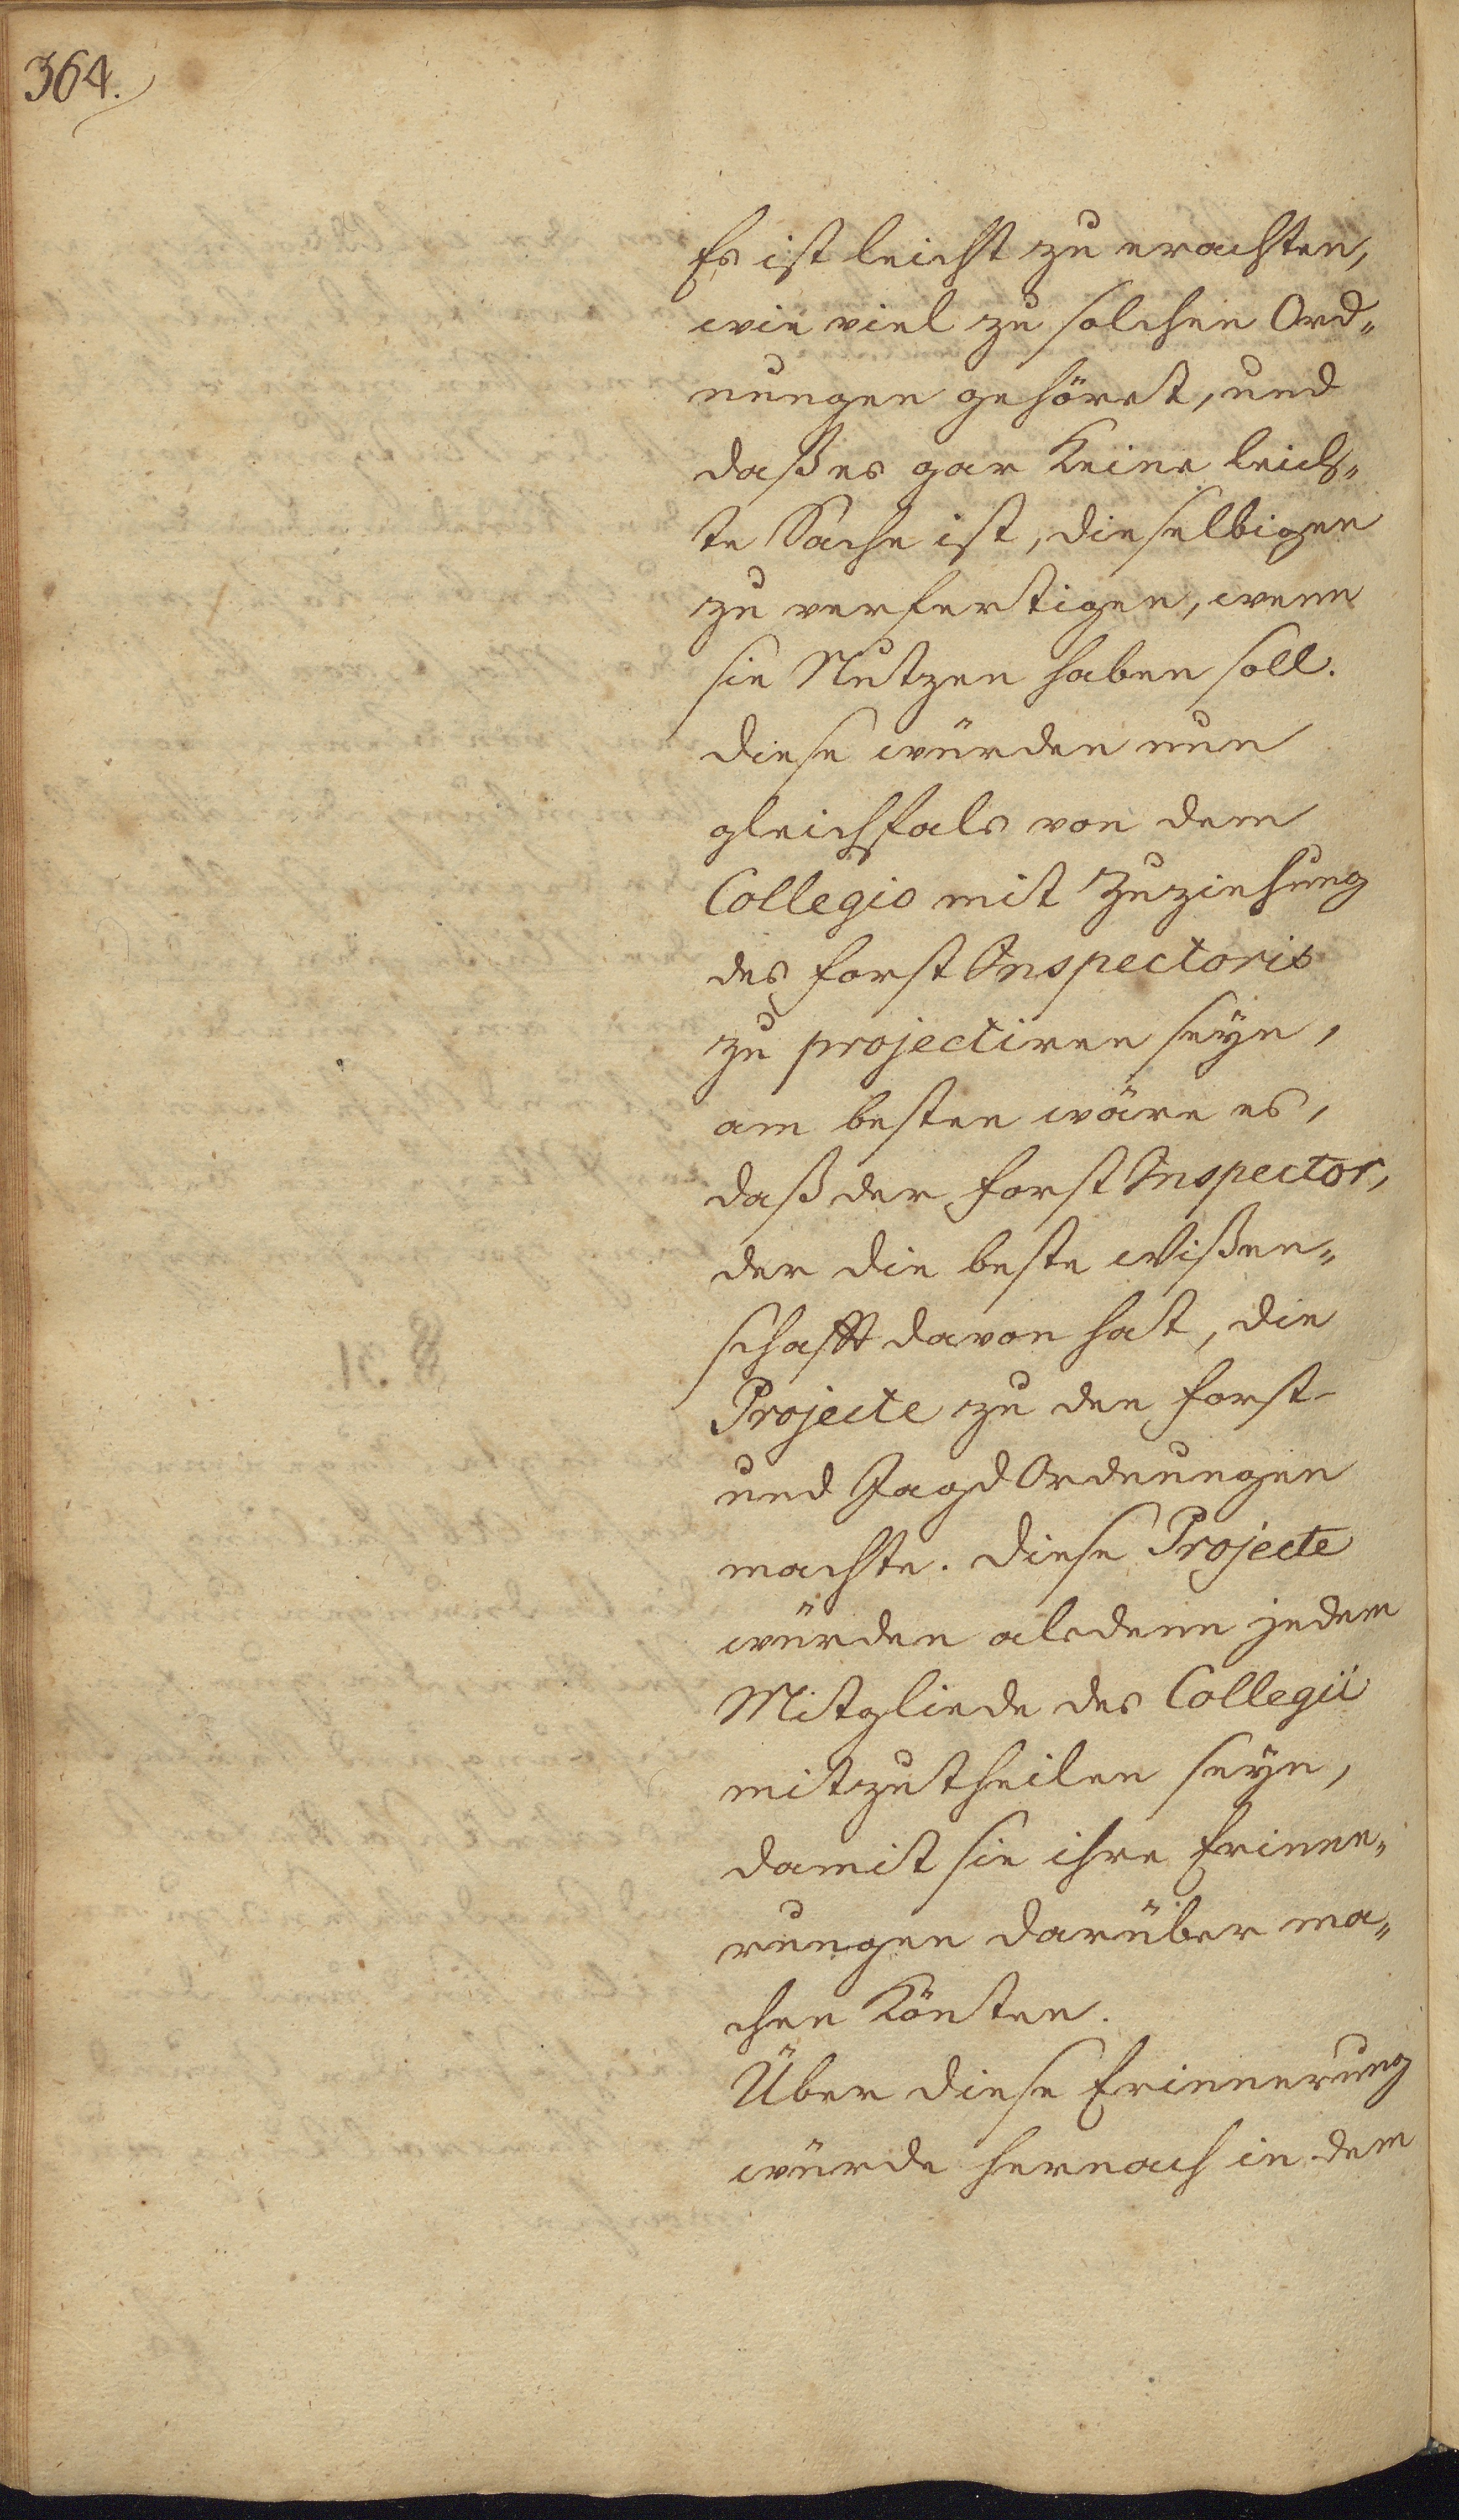 364.
Es ist leicht zu erachten,
wie viel zu solchen Ord„
nungen gehöret, und
daß es gar keine leich„
te Sache ist, dieselbigen
zu verfertigen, wenn
sie Nutzen haben soll.
diese würden nun
gleichfals von dem
Collegio mit Zuziehung
des Forst Inspectoris
zu projectiren seyn,
am besten wäre es,
daß der Forst Inspector,
der die beste Wißen„
schafft davon hat, die
Projecte zu den Forst-
und Jagd Ordnungen
machte. diese Projecte
würden alsdenn jedem
Mitgliede des Collegii
mitzutheilen seyn,
damit sie ihre Erinne„
rungen darüber ma„
chen könten.
Über diese Erinnerung
würde hernach in dem